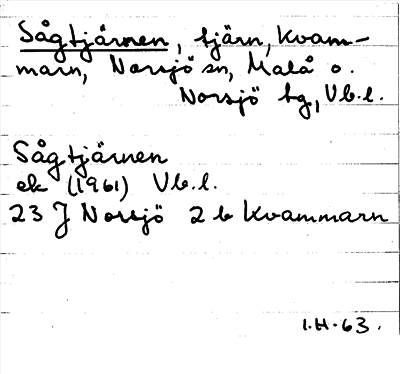 Sågtjärnen, tjärn, Kvam-
marn, Norsjö sn, Malå o.
Norsjö tg, Vb.l.
Sågtjärnen
ek (1961) Vb.l.
23 J Norsjö 2 b Kvammarn
I.H. 63.